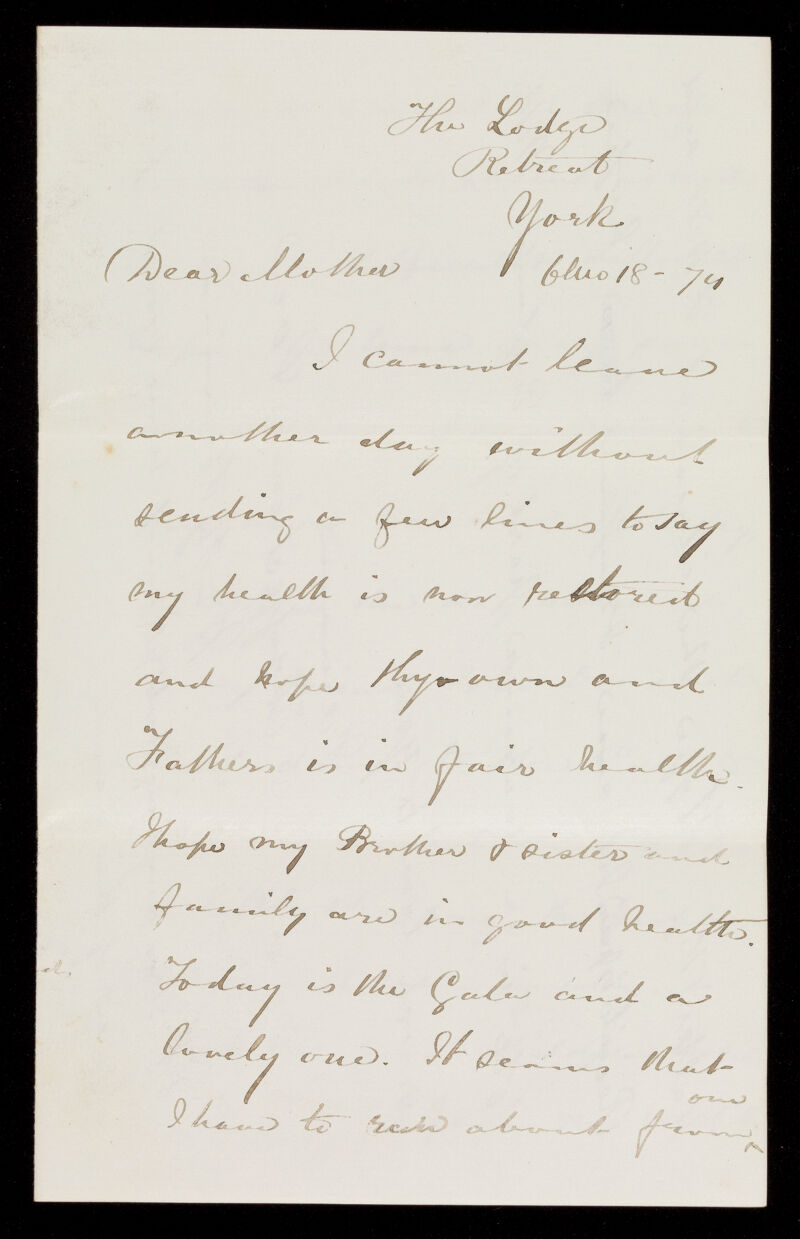 The Lodge
Retreat
York
Dear Mother 6 Mo 18 - 74
I cannot leave
another day without
sending a few lines to say
my health is now restored
and hope thy own and
Fathers is in fair health.
I hope my Brother & sister and
family are in good health.
Today is the Gala and a
lovely one. It seems that
I have to run about from ^ one